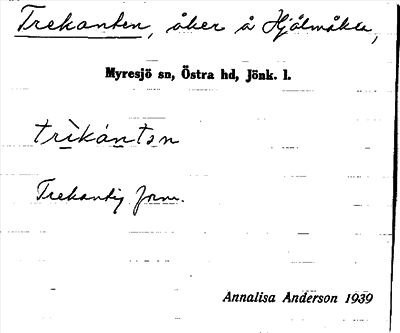 Trekanten, åker å Hjälmåkra,
Myresjö sn, Östra hd, Jönk. l.
trìkántən
Trekantig form.
Annalisa Anderson 1939